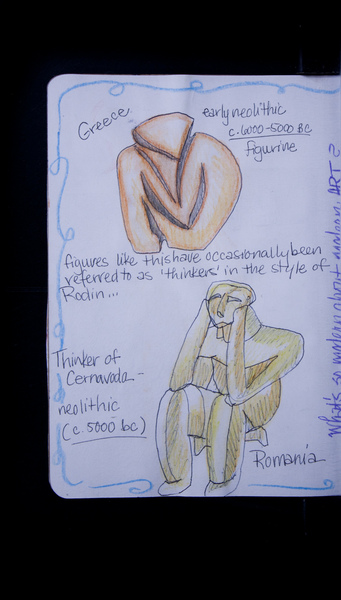 Greece
early neolithic
c. 6000-5000 BC
figurine
figures like this have occasionally been
referred to as 'thinkers' in the style of
Rodin...
Thinker of
Cernavoda -
neolithic
(c. 5000 bc)
Romania
What's so modern about modern ART?